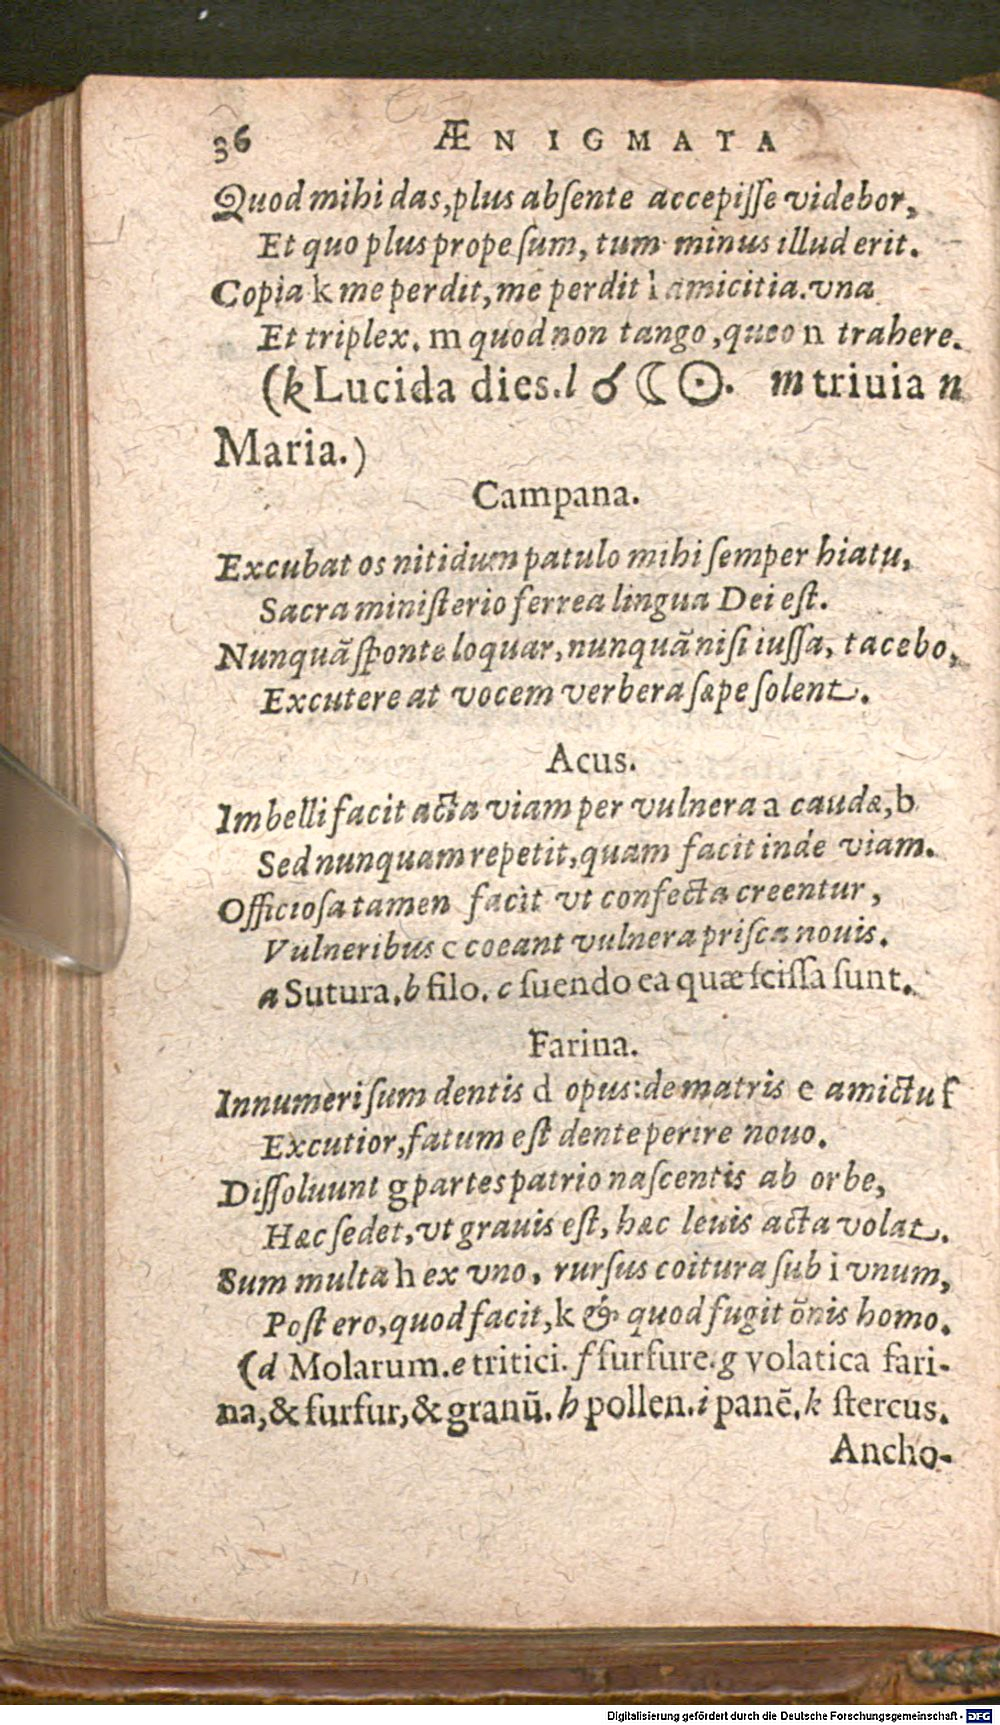 36 ÆNIGMATA
Quod mihi das, plus absente accepisse videbor,
Et quo plus prope sum, tum minus illud erit.
Copia k me perdit, me perdit l amicitia. vna
Et triplex. m quod non tango, queo n trahere.
(k Lucida dies. l ☌ ☾ ☉. m triuia n
Maria.)
Campana.
Excubat os nitidum patulo mihi semper hiatu,
Sacra ministerio ferrea lingua Dei est.
Nunquã sponte loquar, nunquã nisi iussa, tacebo,
Excutere at vocem verbera sæpe solent.
Acus.
Imbelli facit acta viam per vulnera a caudæ, b
Sed nunquam repetit, quam facit inde viam.
Officiosa tamen facit vt confecta creentur,
Vulneribus c coeant vulnera prisca nouis.
a Sutura. b filo. c suendo ea quæ scissa sunt.
Farina.
Innumeri sum dentis d opus: de matris e amictu f
Excutior, fatum est dente perire nouo.
Dissoluunt g partes patrio nascentis ab orbe,
Hæc sedet, vt grauis est, hæc leuis acta volat.
Sum multa h ex vno, rursus coitura sub i vnum,
Post ero, quod facit, k & quod fugit õnis homo.
(d Molarum. e tritici. f furfure. g volatica fari-
na, & furfur, & granũ. h pollen. i panẽ. k stercus.
Ancho-
Digitalisierung gefördert durch die Deutsche Forschungsgemeinschaft - DFG